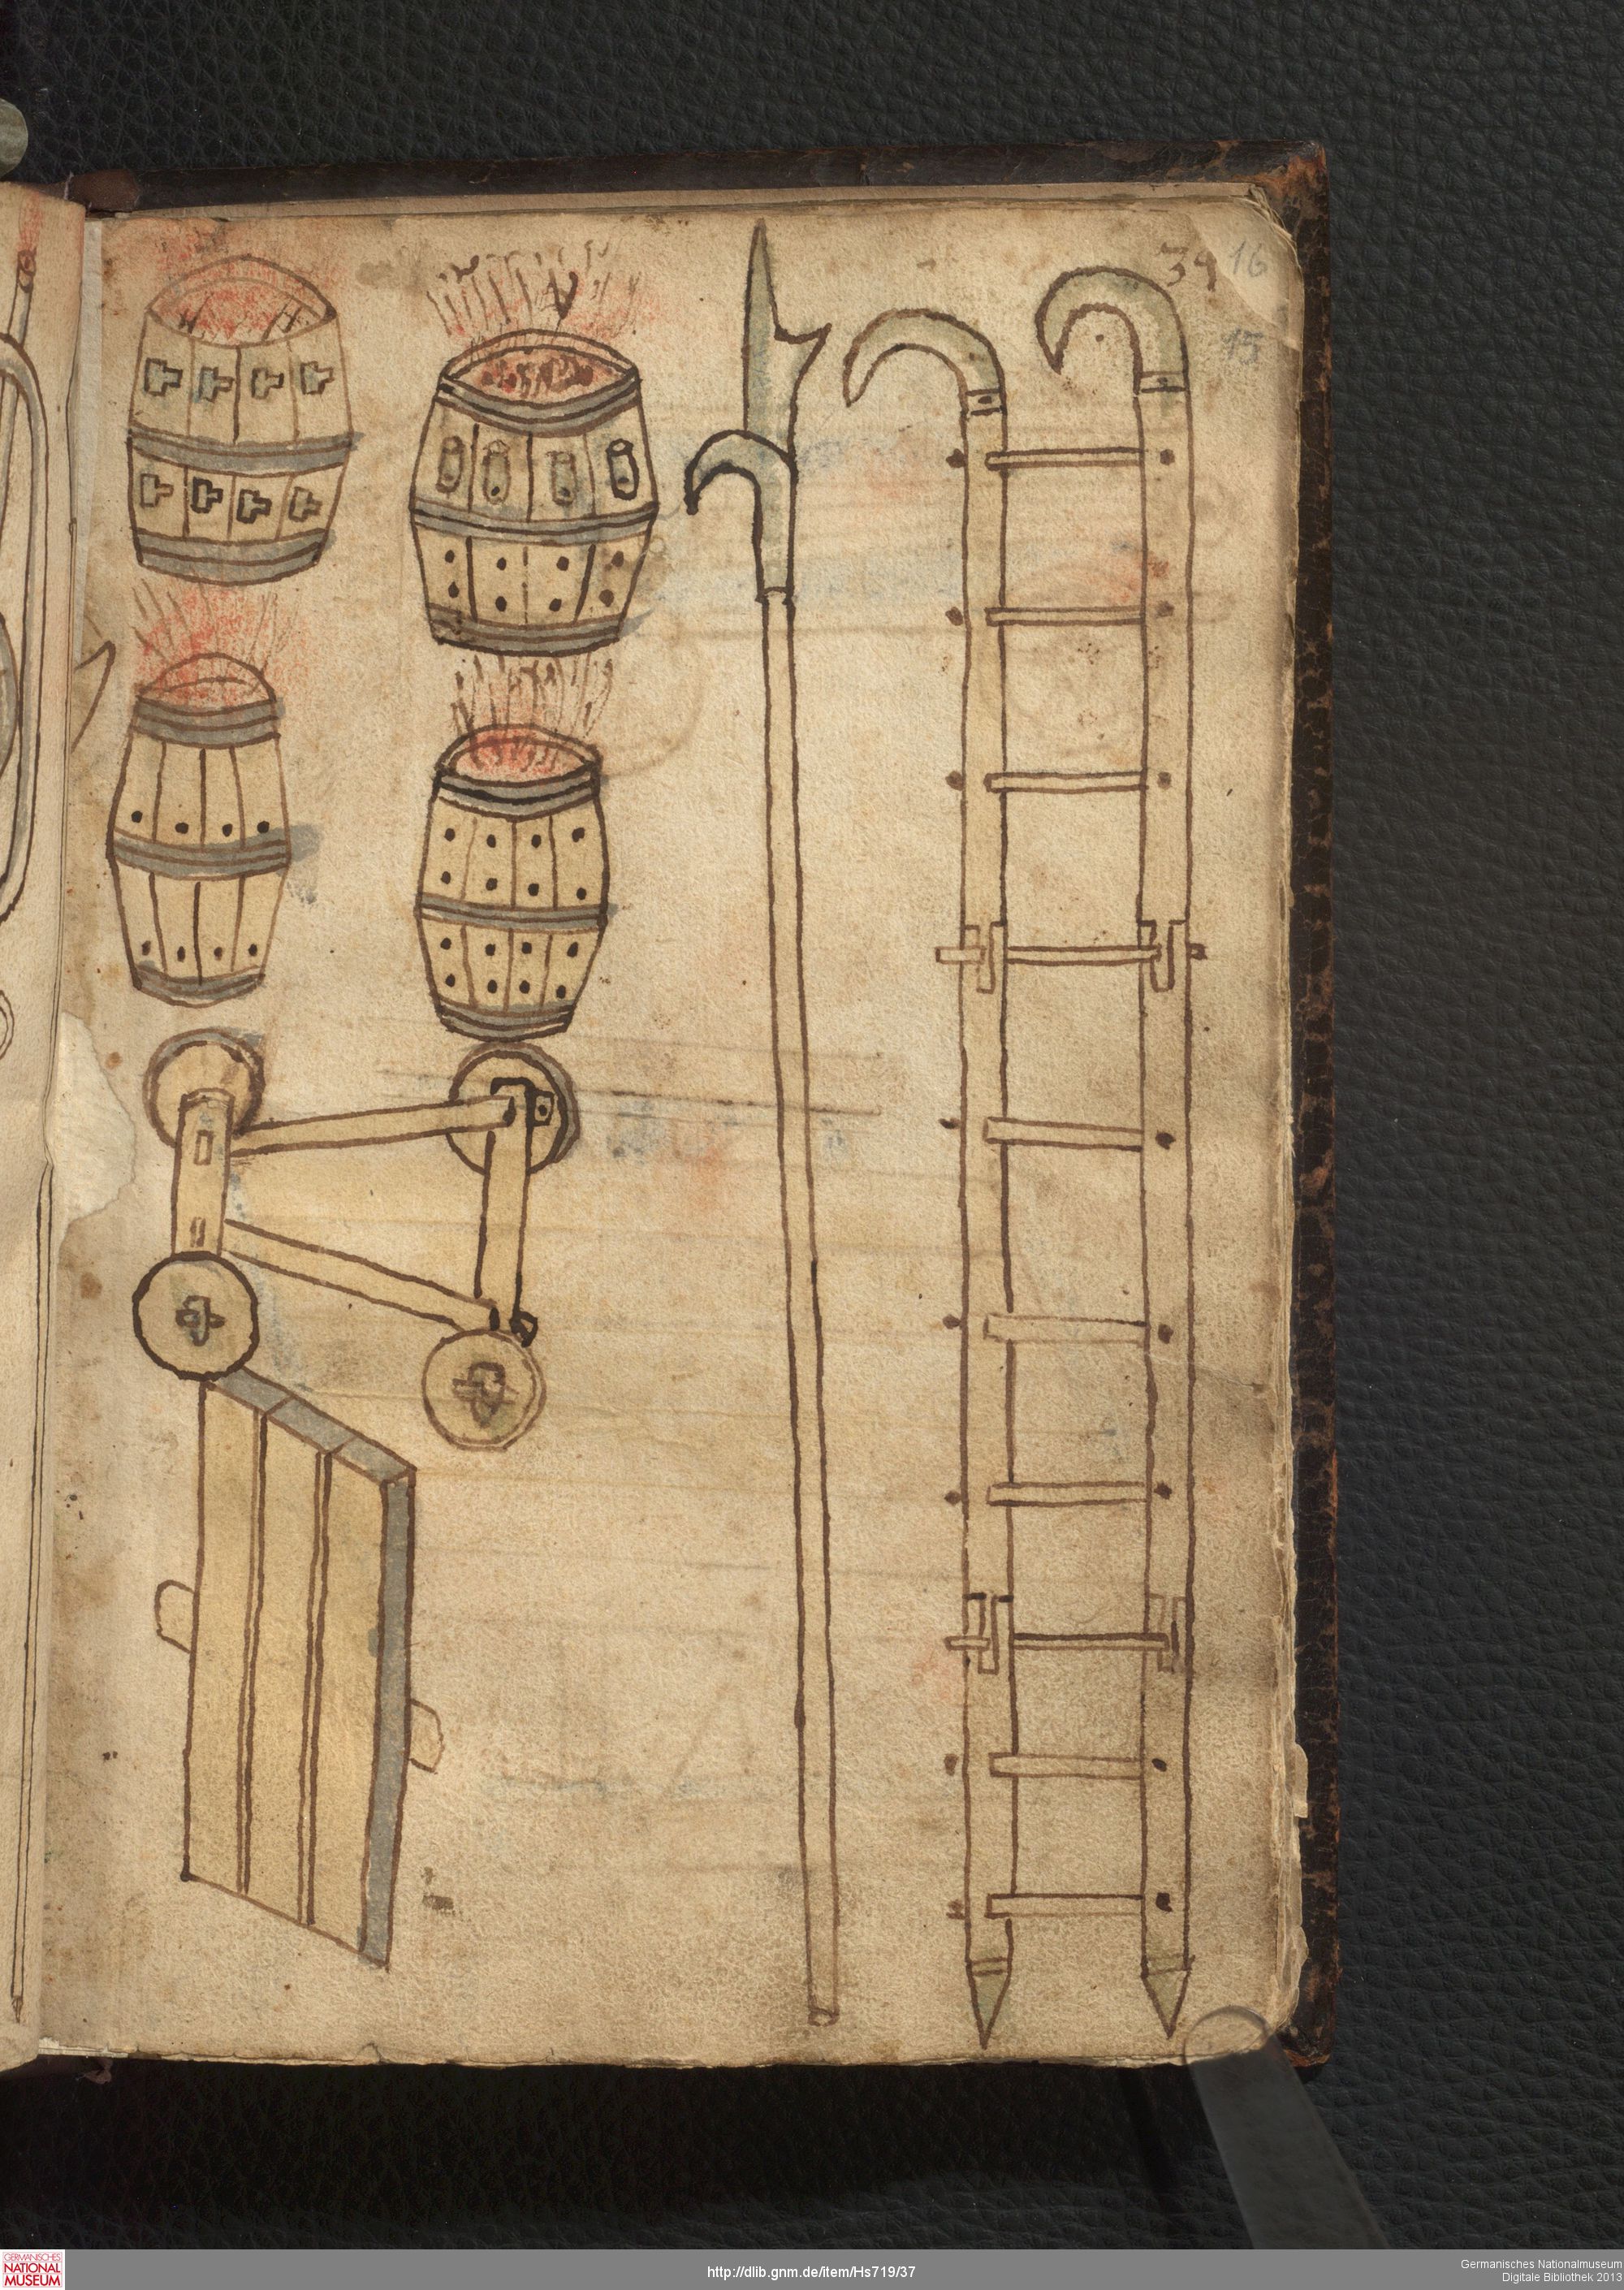 39 16
15
GERMANISCHES
NATIONAL
MUSEUM
http://dlib.gnm.de/item/Hs719/37
Germanisches Nationalmuseum
Digitale Bibliothek 2013